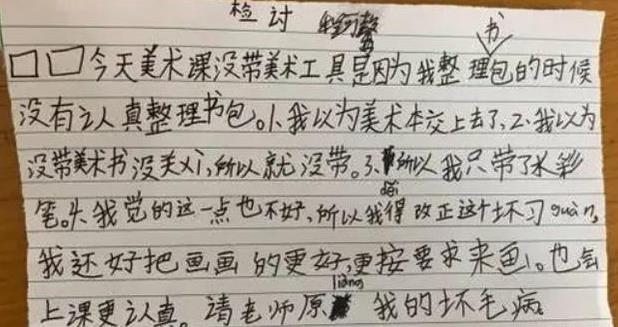 检讨
书
□□今天美术课没带美术工具是因为我整理包的时候
没有认真整理书包。1、我以为美术本交上去了,2、我以为
没带美术书没关xi,所以就没带。3、所以我只带了水彩
笔。4、我觉的这一点也不好,所以我得děi改正这个坏习guàn,
我还好把画画的更好,更按要求来画。也会
上课更认真。请老师原liàng我的坏毛病。